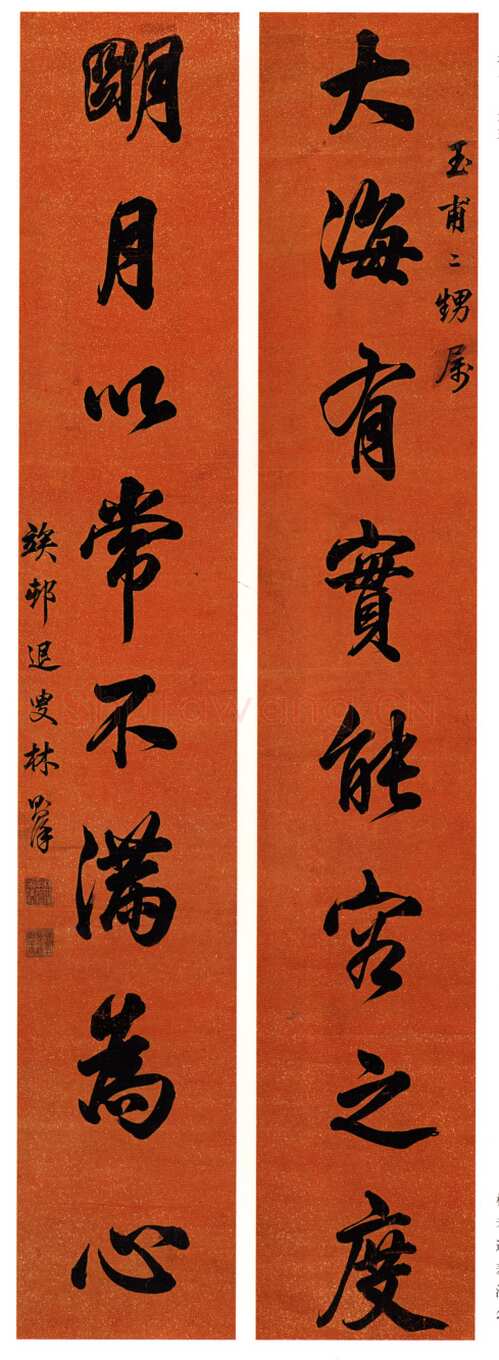 大海有實能容之度
玉甫二甥屬
明月以常不滿為心
竢邨退叟林則徐